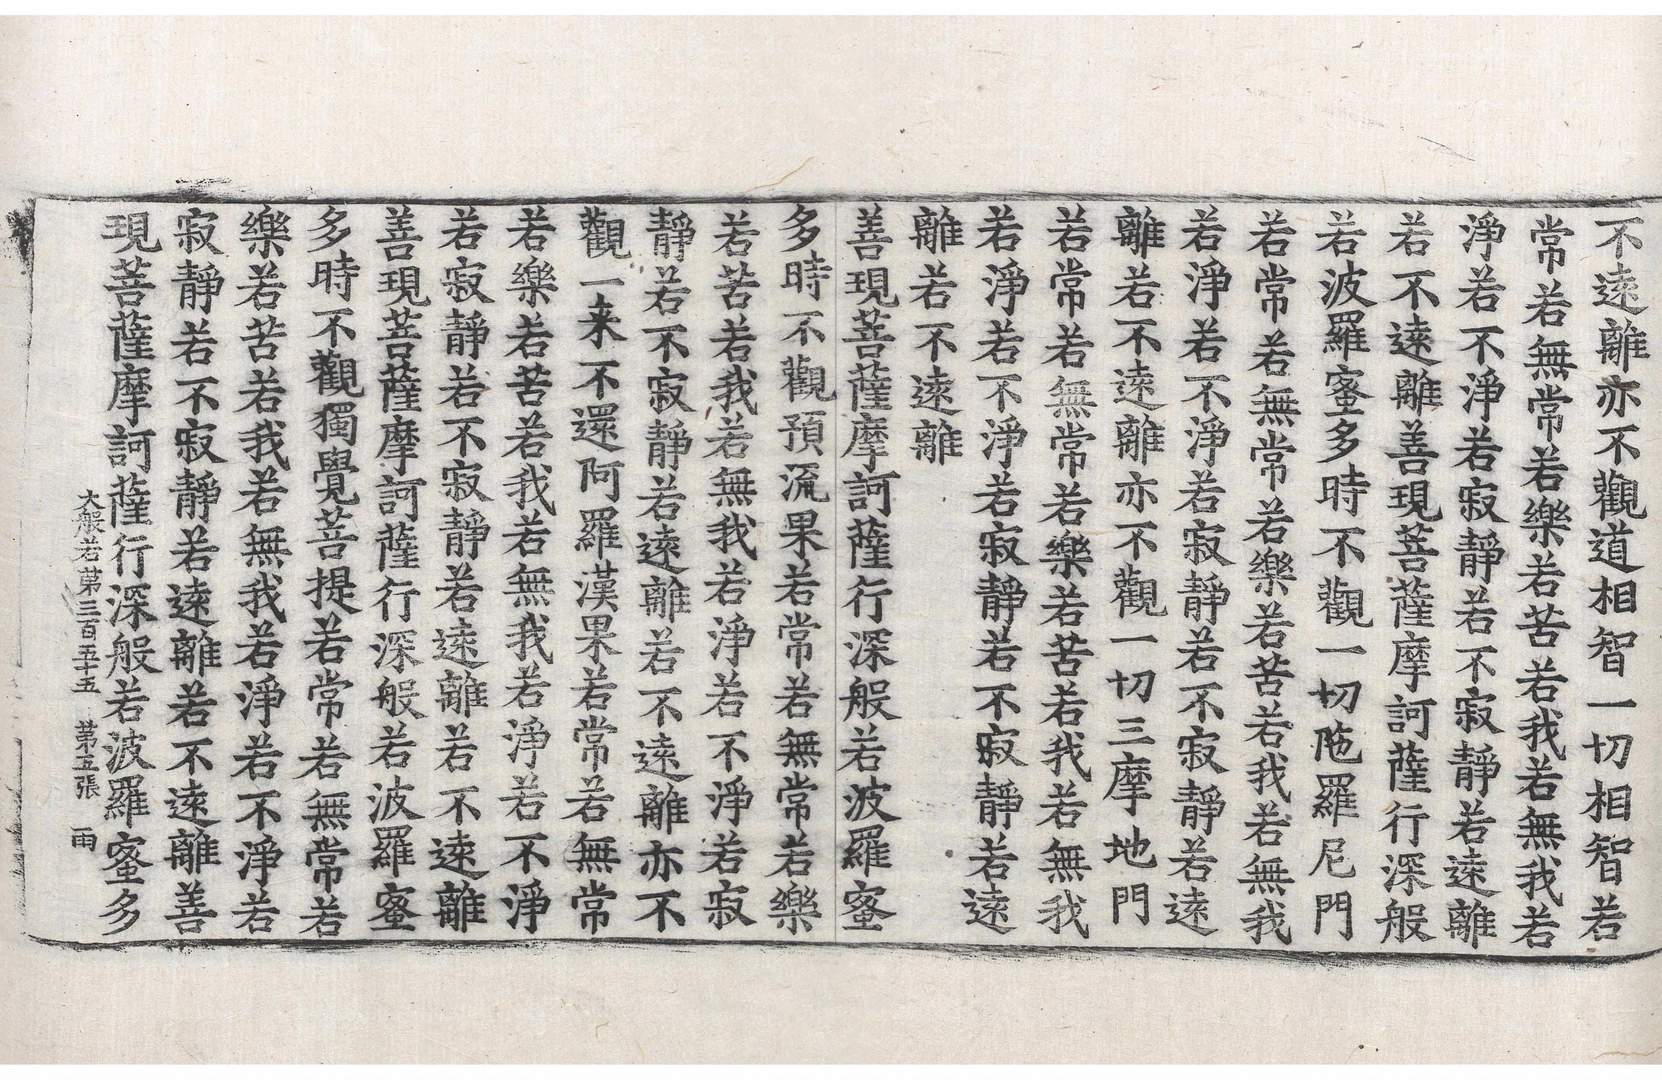 不遠離亦不觀道相智一切相智若
常若無常若樂若苦若我若無我若
淨若不淨若寂靜若不寂靜若遠離
若不遠離善現菩薩摩訶薩行深般
若波羅蜜多時不觀一切陁羅尼門
若常若無常若樂若苦若我若無我
若淨若不淨若寂靜若不寂靜若遠
離若不遠離亦不觀一切三摩地門
若常若無常若樂若苦若我若無我
若淨若不淨若寂靜若不寂靜若遠
離若不遠離
善現菩薩摩訶薩行深般若波羅蜜
多時不觀預流果若常若無常若樂
若苦若我若無我若淨若不淨若寂
靜若不寂靜若遠離若不遠離亦不
觀一来不還阿羅漢果若常若無常
若樂若苦若我若無我若淨若不淨
若寂靜若不寂靜若遠離若不遠離
善現菩薩摩訶薩行深般若波羅蜜
多時不觀獨覺菩提若常若無常若
樂若苦若我若無我若淨若不淨若
寂靜若不寂靜若遠離若不遠離善
現菩薩摩訶薩行深般若波羅蜜多
大般若第三百五十五 第五張 雨